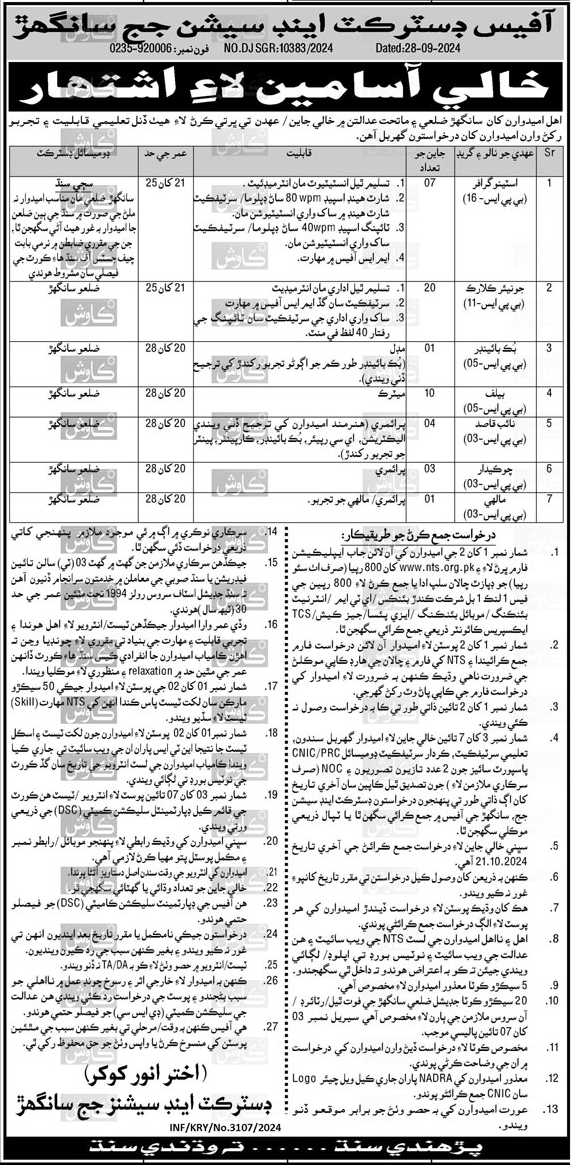 آفيس ڊسٽرڪٽ اينڊ سيشن جج سانگهڙ
فون نمبر: 920006-0235 NO.DJ SGR:10383/2024 Dated:28-09-2024
خالي آسامين لاءِ اشتهار
اهل اميدوارن کان سانگهڙ ضلعي ۽ ماتحت عدالتن ۾ خالي جاين / عهدن تي ڀرتي ڪرڻ لاءِ هيٺ ڏنل تعليمي قابليت ۽ تجربو
رکڻ وارن اميدوارن کان درخواستون گهربل آهن.
Sr عهدي جو نالو ۽ گريڊ جاين جو تعداد قابليت عمر جي حد ڊوميسائل ڊسٽرڪٽ
1 اسٽينوگرافر (بي پي ايس-16) 07 21 کان 25 سڄي سنڌ
1. تسليم ٿيل انسٽيٽيوٽ مان انٽرميڊيئٽ.
2. شارٽ هينڊ اسپيڊ 80 wpm سان ڊپلوما/ سرٽيفڪيٽ
شارٽ هينڊ ۾ ساک واري انسٽيٽيوشن مان.
3. ٽائپنگ اسپيڊ 40wpm سان ڊپلوما/ سرٽيفڪيٽ
ساک واري انسٽيٽيوشن مان.
4. ايم ايس آفيس ۾ مهارت.
سانگهڙ ضلعي مان مناسب اميدوار نه
ملڻ جي صورت ۾ سنڌ جي ٻين ضلعن
جا اميدوار به غور هيٺ آڻي سگهجن ٿا،
جن جي مقرري ضابطن ۾ نرمي بابت
چيف جسٽس آف سنڌ هاءِ ڪورٽ جي
فيصلي سان مشروط هوندي
2 جونيئر ڪلارڪ (بي پي ايس-11) 20 21 کان 25 ضلعو سانگهڙ
1. تسليم ٿيل اداري مان انٽرميڊيٽ
2. سرٽيفڪيٽ سان گڏ ايم ايس آفيس ۾ مهارت
3. ساک واري اداري جي سرٽيفڪيٽ سان ٽائپنگ جي
رفتار 40 لفظ في منٽ.
3 بُڪ بائينڊر (بي پي ايس-05) 01 مڊل 20 کان 28 ضلعو سانگهڙ
(بُڪ بائينڊر طور ڪم جو اڳوڻو تجربو رکندڙ کي ترجيح
ڏني ويندي).
4 بيلف (بي پي ايس-05) 10 ميٽرڪ 20 کان 28 ضلعو سانگهڙ
5 نائب قاصد (بي پي ايس-03) 04 20 کان 28 ضلعو سانگهڙ
پرائمري (هنرمند اميدوارن کي ترجيح ڏني ويندي
اليڪٽريشن، اي سي ريپئر، بُڪ بائينڊر، ڪارپينٽر، پينٽر
جو تجربو رکندڙ).
6 چوڪيدار (بي پي ايس-03) 03 پرائمري 20 کان 28 ضلعو سانگهڙ
7 مالهي (بي پي ايس-03) 01 پرائمري/ مالهي جو تجربو. 20 کان 28 ضلعو سانگهڙ
درخواست جمع ڪرڻ جو طريقيڪار:
1. شمار نمبر 1 کان 2 جي اميدوارن کي آن لائن جاب ايپليڪيشن
فارم ڀرڻ لاءِ www.nts.org.pk کان 800 رپيا (صرف اٺ سئو
رپيا) جو ڊپازٽ چالان سلپ ادا يا جمع ڪرڻ لاءِ 800 رپين جي
فيس 1 لنڪ 1 بل شرڪت ڪندڙ بئنڪس/ اي ٽي ايم / انٽرنيٽ
بئنڪنگ / موبائل بئنڪنگ / ايزي پئسا/ جيز ڪيش/ TCS
ايڪسپريس ڪائونٽر ذريعي جمع ڪرائي سگهجن ٿا.
2. شمار نمبر 1 کان 2 پوسٽن لاءِ اميدوار آن لائن درخواست فارم
جمع ڪرائيندا ۽ NTS کي فارم ۽ چالان جي هارڊ ڪاپي موڪلڻ
جي ضرورت ناهي وڌيڪ ڪنهن به ضرورت لاءِ اميدوار کي
درخواست فارم جي ڪاپي پاڻ وٽ رکڻ گهرجي.
3. شمار نمبر 1 کان 2 تائين ذاتي طور تي ڪا به درخواست وصول نه
ڪئي ويندي.
4. شمار نمبر 3 کان 7 تائين خالي جاين لاءِ اميدوار گهربل سندون،
تعليمي سرٽيفڪيٽ، ڪردار سرٽيفڪيٽ ڊوميسائل CNIC/PRC
پاسپورٽ سائيز جون 2 عدد تازيون تصويرون ۽ NOC (صرف
سرڪاري ملازمن لاءِ) جون تصديق ٿيل ڪاپين سان آخري تاريخ
کان اڳ ذاتي طور تي پنهنجون درخواستون ڊسٽرڪٽ اينڊ سيشن
جج، سانگهڙ جي آفيس ۾ جمع ڪرائي سگهن ٿا يا ٽپال ذريعي
موڪلي سگهن ٿا.
5. سڀني خالي جاين لاءِ درخواست جمع ڪرائڻ جي آخري تاريخ
21.10.2024 آهي.
6. ڪنهن به ذريعن کان وصول ڪيل درخواستن تي مقرر تاريخ کانپوءِ
غور نه ڪيو ويندو.
7. هڪ کان وڌيڪ پوسٽن لاءِ درخواست ڏيندڙ اميدوارن کي هر
پوسٽ لاءِ الڳ درخواست جمع ڪرائڻي پوندي.
8. اهل ۽ نااهل اميدوارن جي لسٽ NTS جي ويب سائيٽ ۽ هن
عدالت جي ويب سائيٽ ۽ نوٽيس بورڊ تي اپلوڊ/ لڳائي
ويندي جيئن ته ڪو به اعتراض هوندو ته داخل ٿي سگهجندو.
9. 5 سيڪڙو ڪوٽا معذور اميدوارن لاءِ مخصوص آهي.
10. 20 سيڪڙو ڪوٽا جوڊيشل ضلعي سانگهڙ جي فوت ٿيل/ رٽائرڊ/
آن سروس ملازمن جي ٻارن لاءِ مخصوص آهي سيريل نمبر 03
کان 07 تائين پاليسي موجب.
11. مخصوص ڪوٽا لاءِ درخواست ڏيڻ وارن اميدوارن کي درخواست
۾ ان جي وضاحت ڪرڻي پوندي.
12. معذور اميدوارن کي NADRA پاران جاري ڪيل ويل چيئر Logo
سان CNIC جمع ڪرائڻو پوندو.
13. عورت اميدوارن کي به حصو وٺڻ جو برابر موقعو ڏنو
ويندو.
14. سرڪاري نوڪري ۾ اڳ ۾ ئي موجود ملازم پنهنجي کاتي
ذريعي درخواست ڏئي سگهن ٿا.
15. جيڪڏهن سرڪاري ملازمن جن گهٽ ۾ گهٽ 03 (ٽي) سالن تائين
فيڊريشن يا سنڌ صوبي جي معاملن ۾ خدمتون سرانجام ڏنيون آهن
ته سنڌ جوڊيشل اسٽاف سروس رولز 1994 تحت مٿين عمر جي حد
30 (ٽيهه سال) هوندي.
16. وڏي عمر وارا اميدوار جيڪڏهن ٽيسٽ/ انٽرويو لاءِ اهل هوندا ۽
تجربي قابليت ۽ مهارت جي بنياد تي مقرري لاءِ چونڊيا وڃن ته
اهڙن ڪامياب اميدوارن جا انفرادي ڪيس سنڌ هاءِ ڪورٽ ڏانهن
عمر جي مٿين حد ۾ relaxation ۽ منظوري لاءِ موڪليا ويندا.
17. شمار نمبر 01 کان 02 جي پوسٽن لاءِ اميدوار جيڪي 50 سيڪڙو
مارڪن سان لکت ٽيسٽ پاس ڪندا انهن کي NTS مهارت (Skill)
ٽيسٽ لاءِ سڏيو ويندو.
18. شمار نمبر 01 کان 02 پوسٽن لاءِ اميدوارن جون لکت ٽيسٽ ۽ اسڪل
ٽيسٽ جا نتيجا اين ٽي ايس پاران ان جي ويب سائيٽ تي جاري ڪيا
ويندا ڪامياب اميدوارن جي لسٽ انٽرويو جي تاريخ سان گڏ ڪورٽ
جي نوٽيس بورڊ تي لڳائي ويندي.
19. شمار نمبر 03 کان 07 تائين پوسٽن لاءِ انٽرويو / ٽيسٽ هن ڪورٽ
جي قائم ڪيل ڊپارٽمينٽل سليڪشن ڪميٽي (DSC) جي ذريعي
ورتي ويندي.
20. سڀني اميدوارن کي وڌيڪ رابطي لاءِ پنهنجو موبائل/ رابطو نمبر
۽ مڪمل پوسٽل پتو مهيا ڪرڻ لازمي آهي.
21. اميدوارن کي انٽرويو جي وقت سندن اصل دستاويز آڻڻا پوندا.
22. خالي جاين جو تعداد وڌائي يا گهٽائي سگهجي ٿو.
23. هن آفيس جي ڊپارٽمينٽل سليڪشن ڪاميٽي (DSC) جو فيصلو
حتمي هوندو.
24. درخواستون جيڪي نامڪمل يا مقرر تاريخ بعد ايندیون انهن تي
غور نه ڪيو ويندو ۽ بغير ڪنهن سبب جي رد ڪيون وينديون.
25. ٽيسٽ/ انٽرويو ۾ حصو وٺڻ لاءِ ڪو به TA/DA نه ڏنو ويندو.
26. ڪنهن به اميدوار لاءِ خارجي اثر ۽ رسوخ چونڊ عمل ۾ نااهلي جو
سبب بڻجندو ۽ پوسٽ جي درخواست رد ڪئي ويندي هن عدالت
جي سليڪشن ڪميٽي (ڊي ايس سي) جو فيصلو حتمي هوندو.
27. هي آفيس ڪنهن به وقت/ مرحلي تي بغير ڪنهن سبب جي مٿئين
پوسٽن کي منسوخ ڪرڻ يا واپس وٺڻ جو حق محفوظ رکي ٿي.
(اختر انور کوکر)
ڊسٽرڪٽ اينڊ سيشنز جج سانگهڙ
INF/KRY/No.3107/2024
پڙهندي سنڌ ...... ته وڌندي سنڌ
ڪاوش